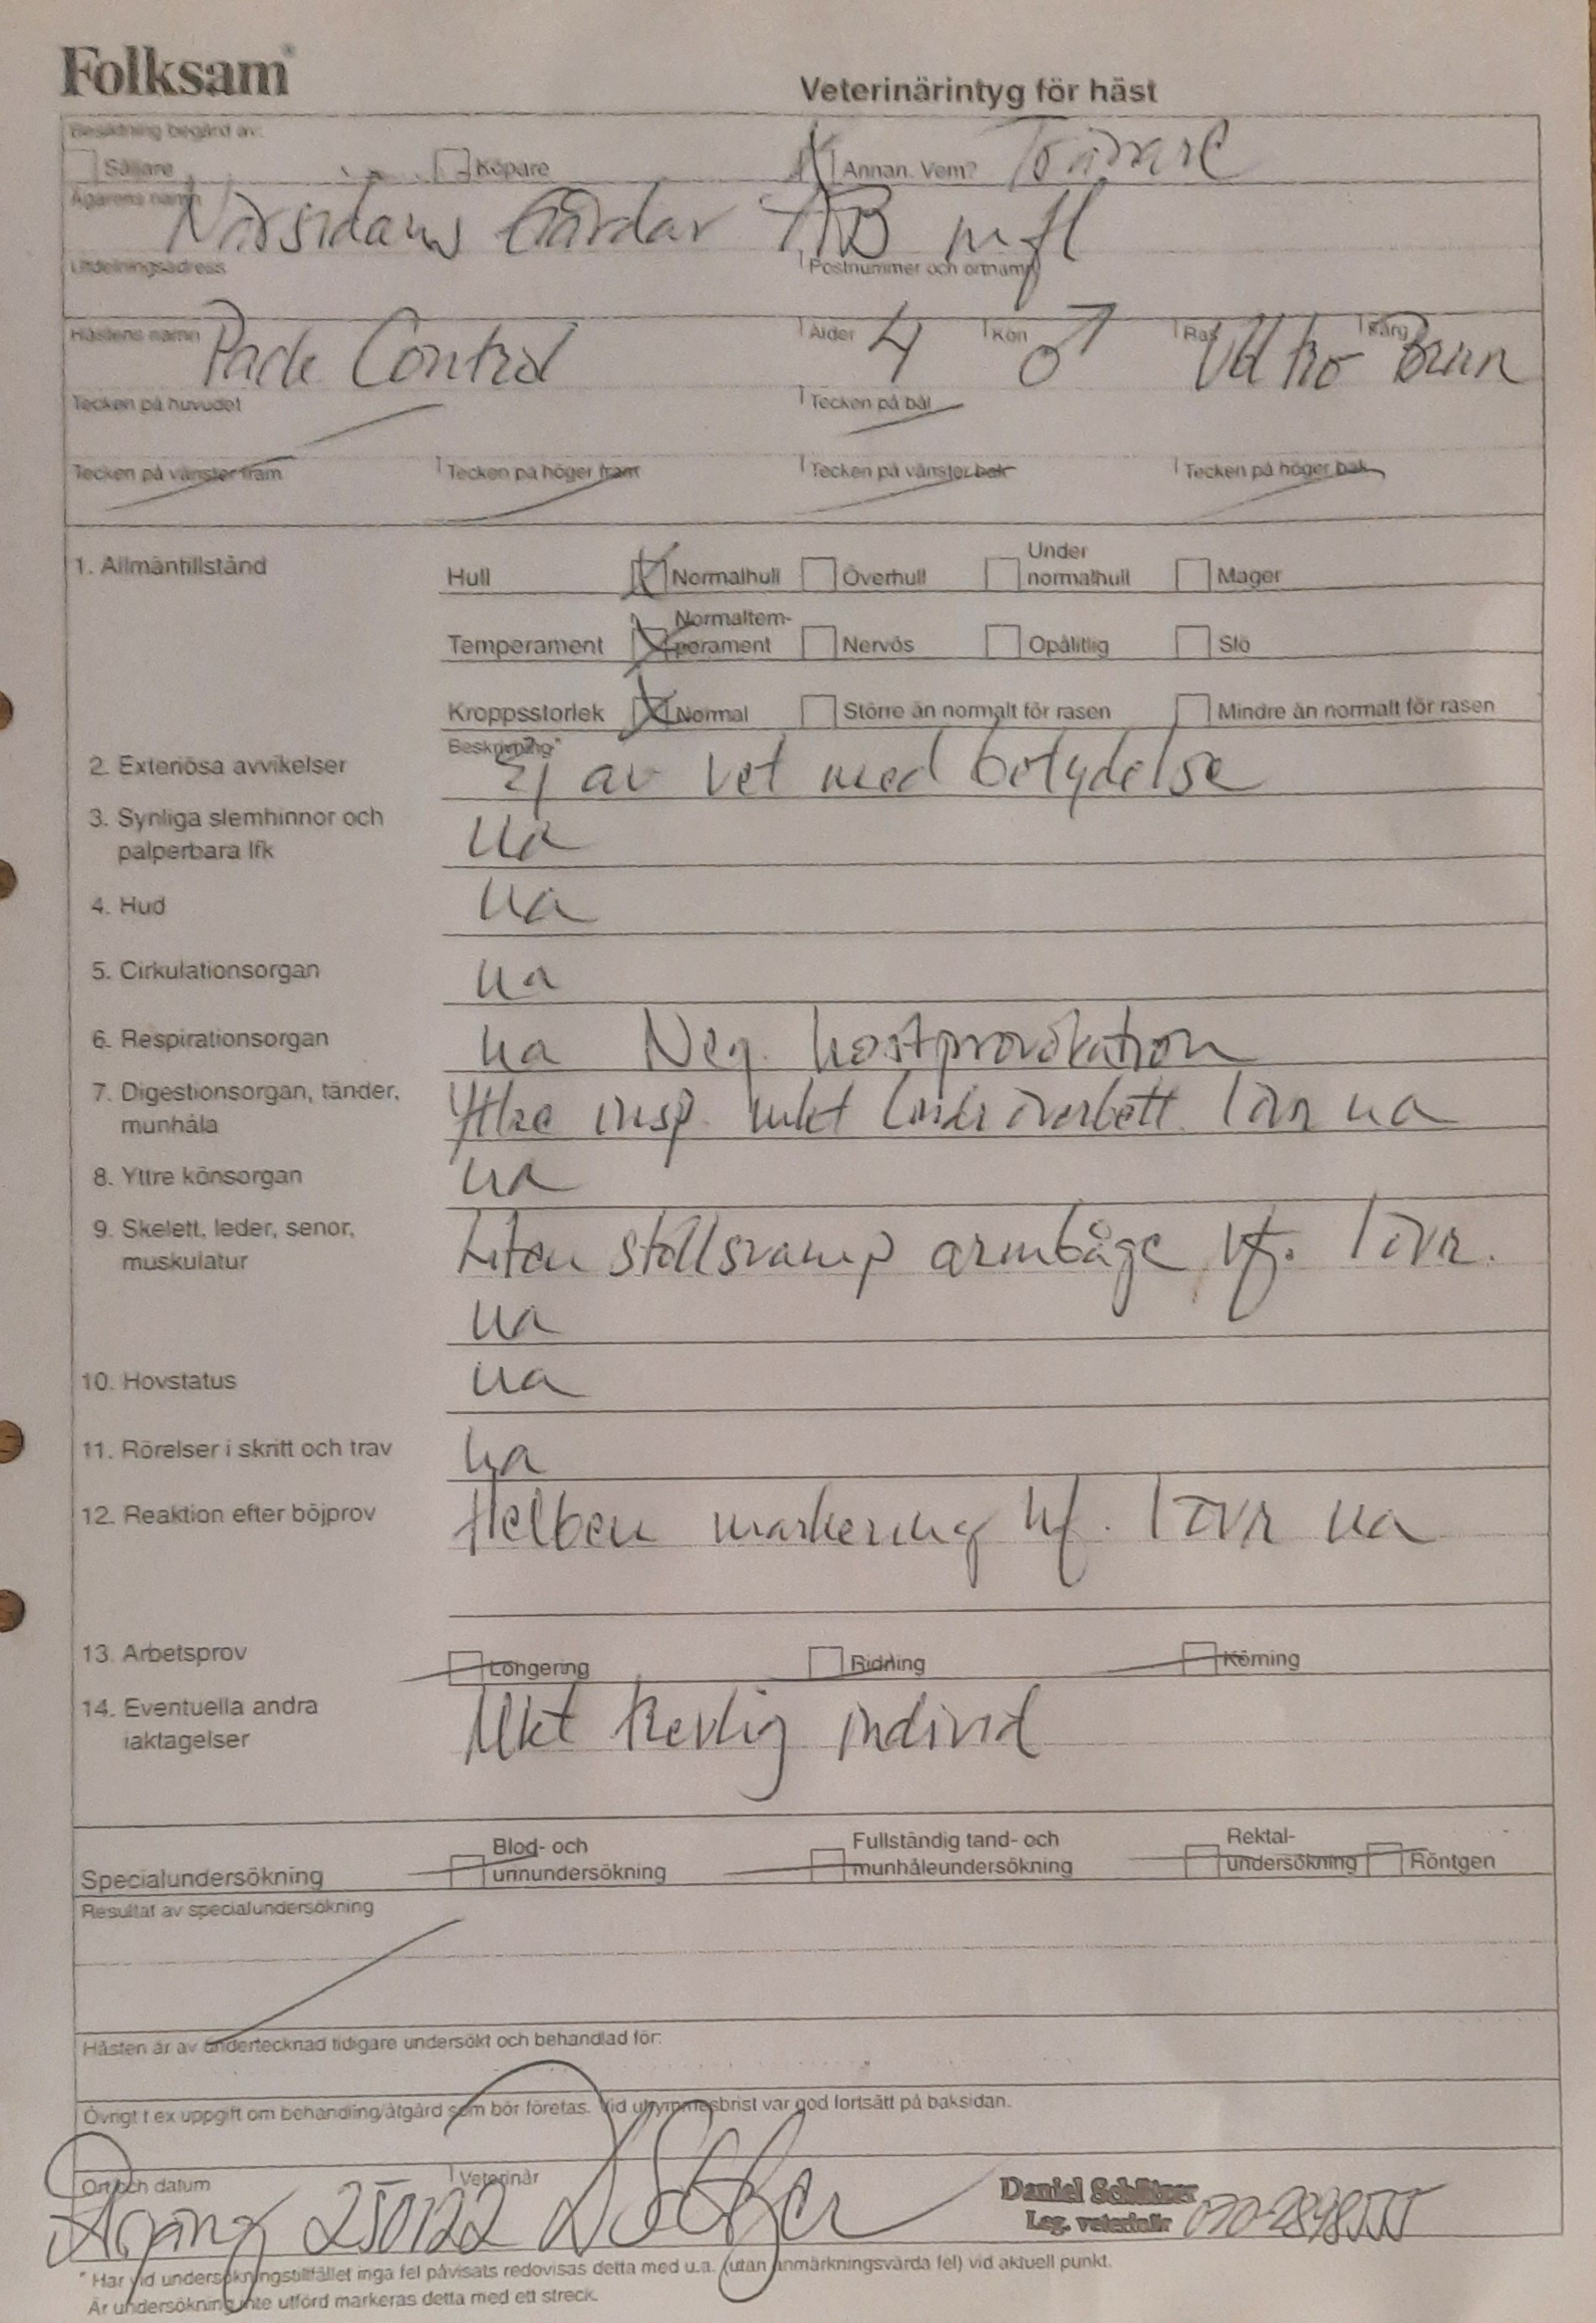 Folksam
Veterinärintyg för häst
Besiktning begärd av:
Säljare Köpare Annan. Vem? Tränare
Ägarens namn
Norsidans Gårdar AB mfl
Utdelningsadress Postnummer och ortnamn
Hästens namn Pade Control Ålder 4 Kön ♂ Ras Färg Brun
Tecken på huvudet Tecken på bål
Tecken på vänster fram Tecken på höger fram Tecken på vänster bak Tecken på höger bak
1. Allmäntillstånd
Hull Normalhull Överhull Under normalhull Mager
Temperament Normaltem-perament Nervös Opålitlig Slö
Kroppsstorlek Normal Större än normalt för rasen Mindre än normalt för rasen
Beskrivning*
2. Exteriösa avvikelser Ej av vet med betydelse
3. Synliga slemhinnor och ua
palperbara lfk
4. Hud ua
5. Cirkulationsorgan ua
6. Respirationsorgan ua Neg. hostprovokation
7. Digestionsorgan, tänder, Yttre insp. mkt lindr överbett. Iövr ua
munhåla
8. Yttre könsorgan ua
9. Skelett, leder, senor, Liten stollsvamp armbåge vf. Iövr.
muskulatur
ua
10. Hovstatus ua
11. Rörelser i skritt och trav ua
12. Reaktion efter böjprov Helben markering hf. Iövr ua
13. Arbetsprov Longering Ridning Körning
14. Eventuella andra Mkt trevlig individ
iaktagelser
Specialundersökning Blod- och urinundersökning Fullständig tand- och munhåleundersökning Rektal-undersökning Röntgen
Resultat av specialundersökning
Hästen är av undertecknad tidigare undersökt och behandlad för:
Övrigt t ex uppgift om behandling/åtgärd som bör företas. Vid utrymmesbrist var god fortsätt på baksidan.
Ort och datum Veterinär
Årjäng 250122
Daniel Schützer
Leg. veterinär 070-2898555
* Har vid undersökningstillfället inga fel påvisats redovisas detta med u.a. (utan anmärkningsvärda fel) vid aktuell punkt.
Är undersökning inte utförd markeras detta med ett streck.